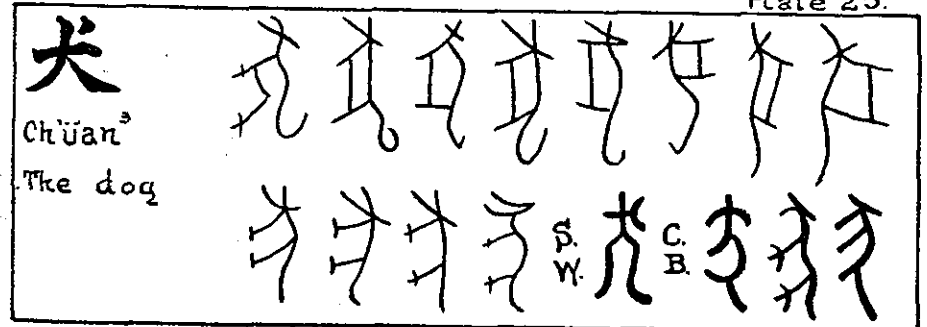 Plate 25.
犬
Ch'üan³
The dog
S. W.
C. B.